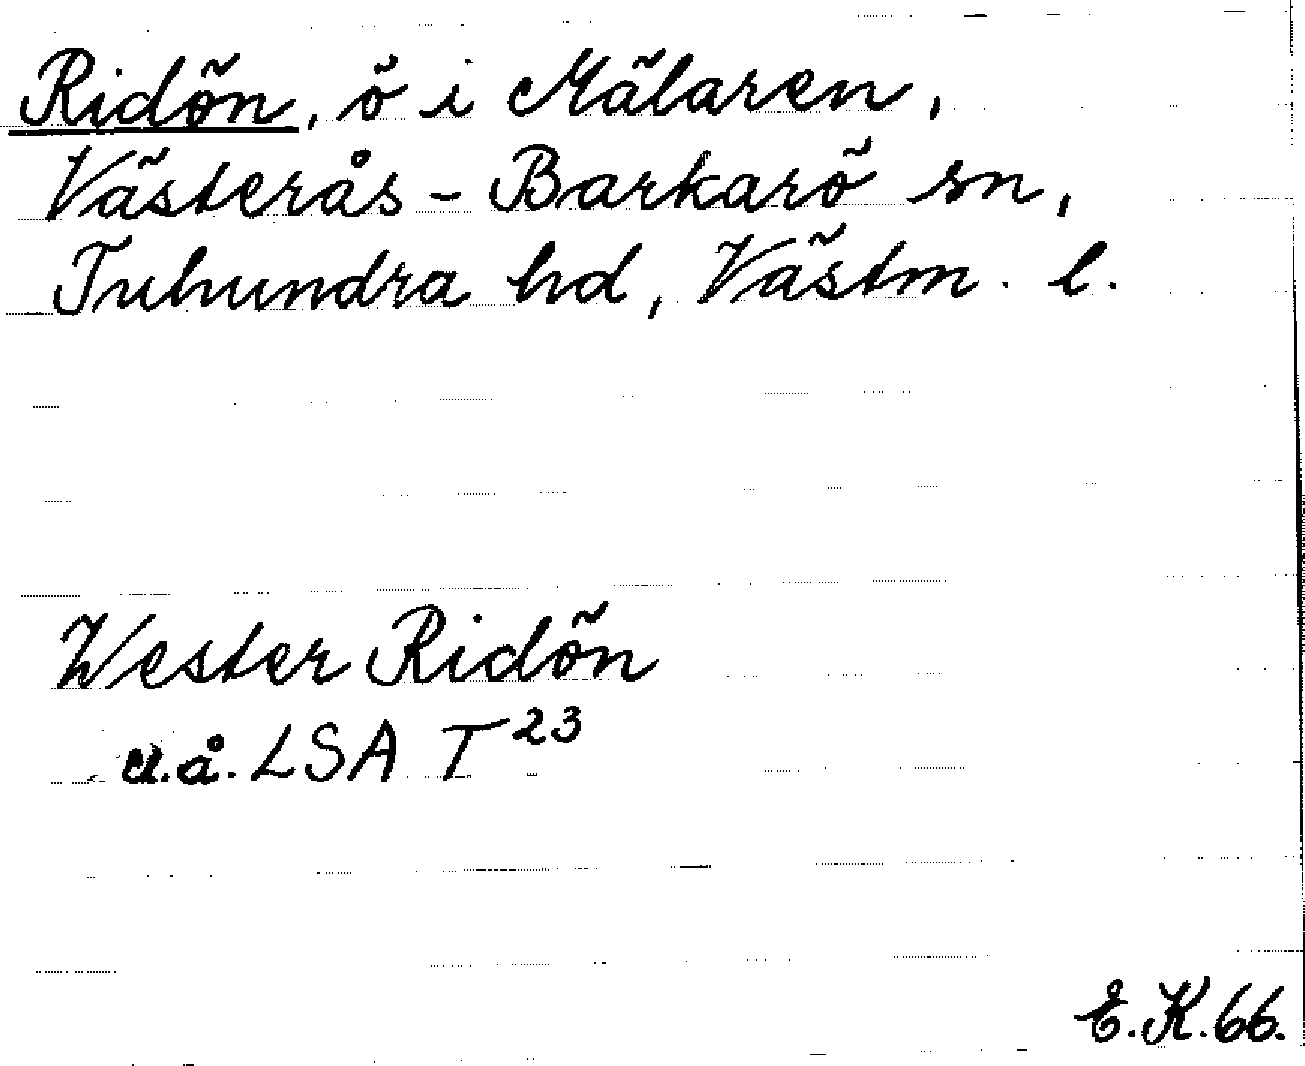 Ridön, ö i Mälaren,
Västerås-Barkarö sn,
Tuhundra hd, Västm. l.
Wester Ridön
u.å. LSA T 23
E.K.66.